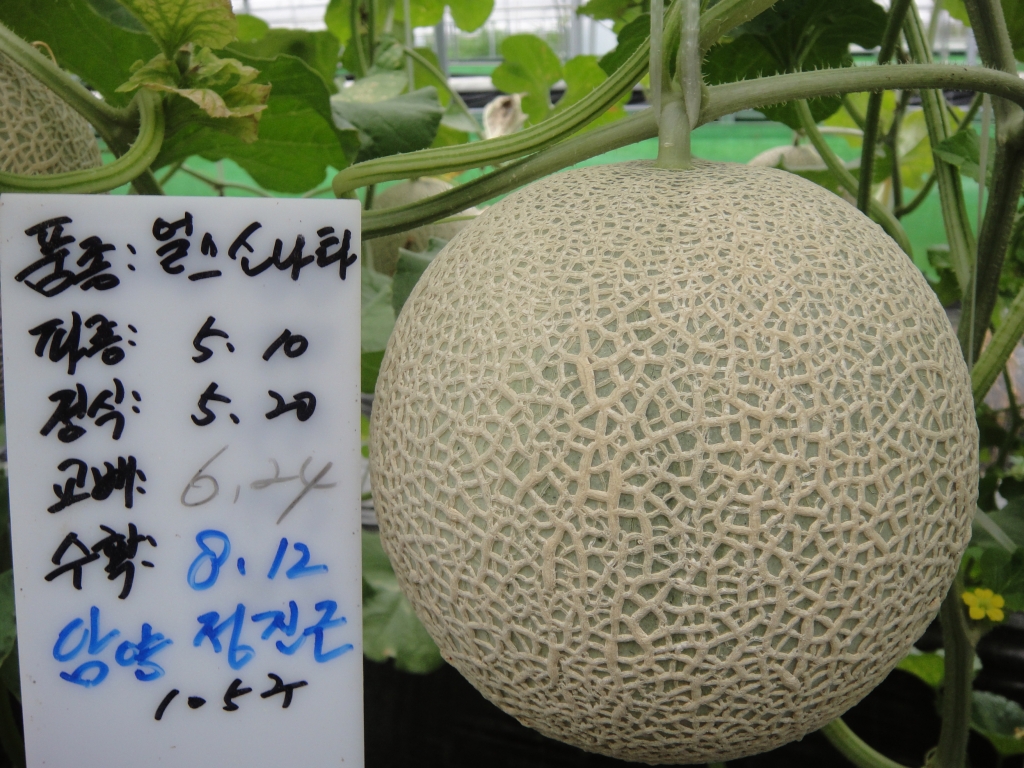 품종: 얼스신나타
파종: 5. 10
정식: 5. 20
교배: 6. 24
수확: 8. 12
정진근
10.5주